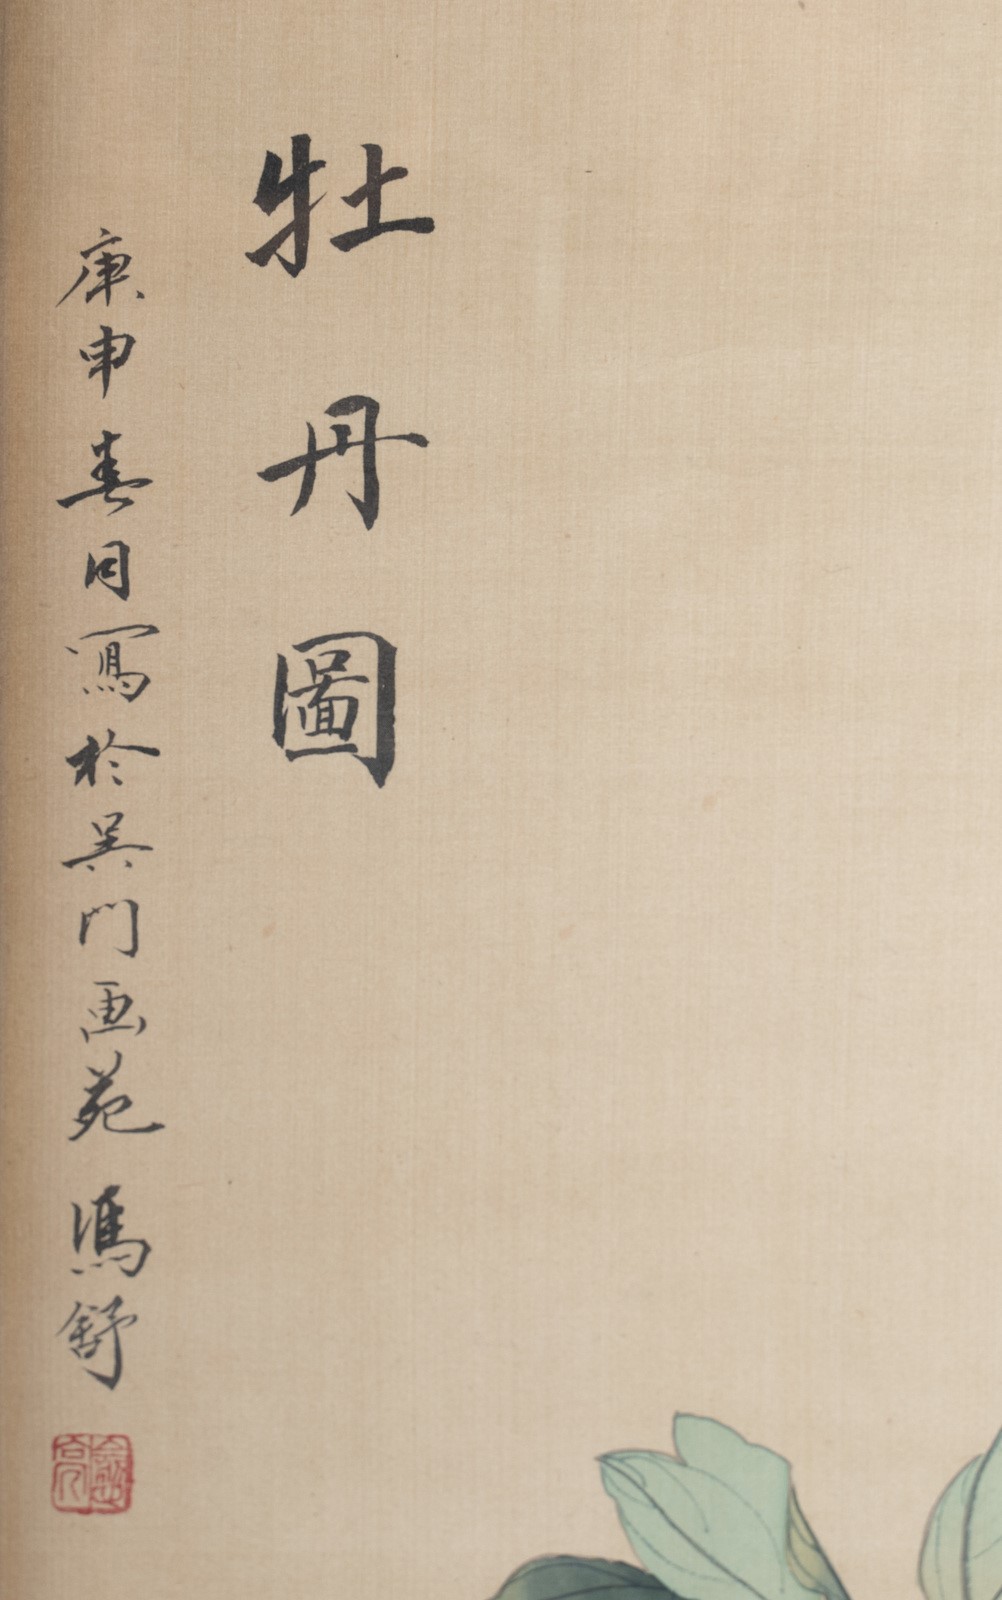 牡丹圖
庚申春月寫於吳門画苑 馮舒